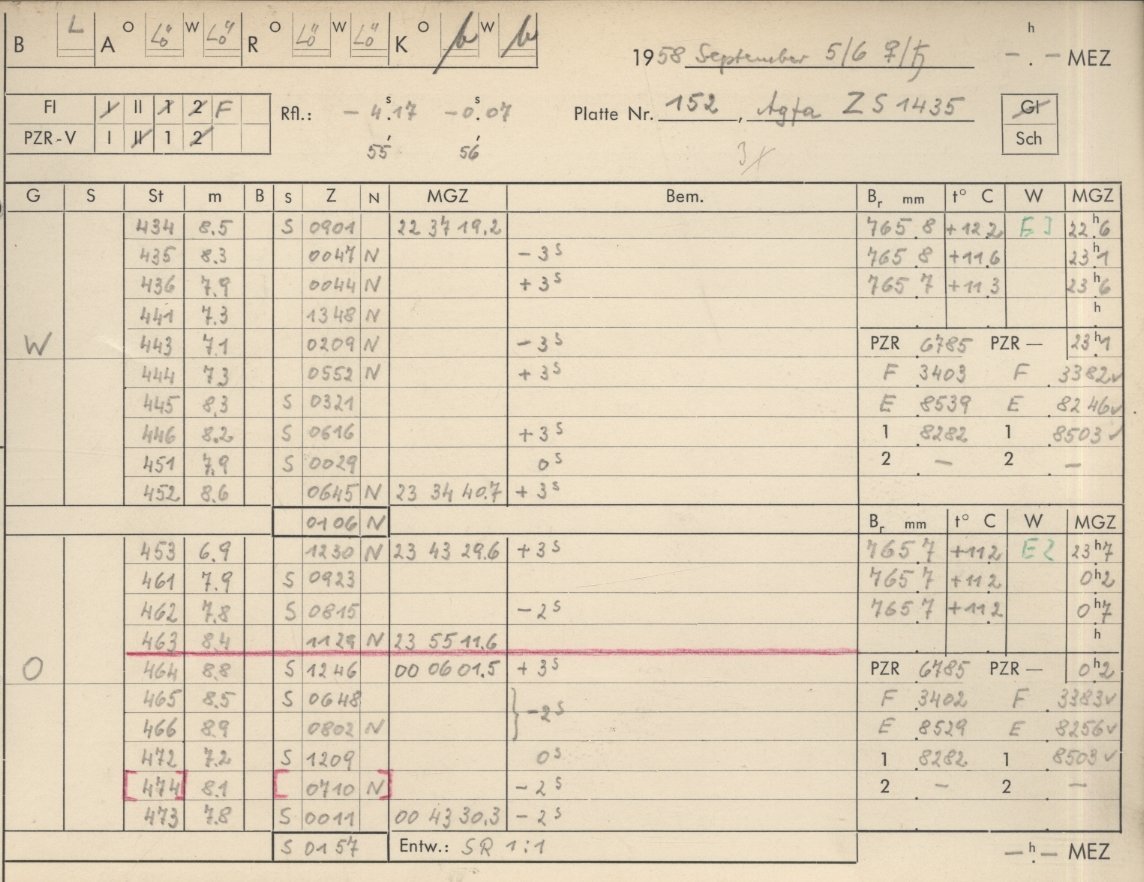 B L A O Lö W Lö R O Lö W Lö K O b W b
1958 September 5/6 ♀/♄ — . — h MEZ
FI I II 1 2 F Rfl.: — 4.s17 —0.s07 Platte Nr. 152, Agfa ZS 1435 GI
PZR-V I II 1 2 55 56 Sch
3x
G S St m B S Z N MGZ Bem. Br mm t° C W MGZ
434 8.5 S 0901 22 37 19.2 765.8 +12.2 E3 22h6
435 8.3 0047 N —3s 765.8 +11.6 23h1
436 7.9 0044 N +3s 765.7 +11.3 23h6
441 7.3 1348 N h
W 443 7.1 0209 N —3s PZR 6785 PZR — 23h1
444 7.3 0552 N +3s F 3403 F 3382✓
445 8.3 S 0321 E 8539 E 8246✓
446 8.2 S 0616 +3s 1 8282 1 8503✓
451 7.9 S 0029 0s 2 — 2 —
452 8.6 0645 N 23 34 40.7 +3s
0106 N Br mm t° C W MGZ
453 6.9 1230 N 23 43 29.6 +3s 765.7 +11.2 E2 23h7
461 7.9 S 0923 765.7 +11.2 0h2
462 7.8 S 0815 —2s 765.7 +11.2 0h7
463 8.4 1129 N 23 55 11.6 h
O 464 8.8 S 1246 00 06 01.5 +3s PZR 6785 PZR — 0h2
465 8.5 S 0648 } —2s F 3402 F 3383✓
466 8.9 0802 N E 8529 E 8256✓
472 7.2 S 1209 0s 1 8282 1 8503✓
[474] 8.1 [0710 N] —2s 2 — 2 —
473 7.8 S 0011 00 43 30.3 —2s
S 0157 Entw.: SR 1:1 — h — MEZ